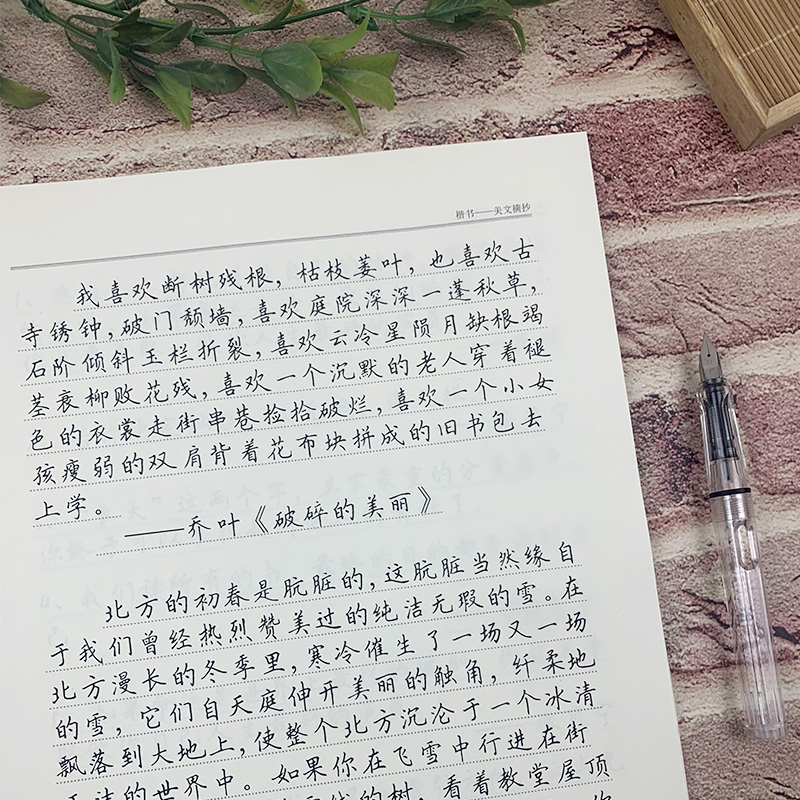 楷书——美文摘抄
我喜欢断树残根，枯枝萎叶，也喜欢古
寺锈钟，破门颓墙，喜欢庭院深深一蓬秋草，
石阶倾斜玉栏折裂，喜欢云冷星陨月缺根竭
茎衰柳败花残，喜欢一个沉默的老人穿着褪
色的衣裳走街串巷捡拾破烂，喜欢一个小女
孩瘦弱的双肩背着花布块拼成的旧书包去
上学。
——乔叶《破碎的美丽》
北方的初春是肮脏的，这肮脏当然缘自
于我们曾经热烈赞美过的纯洁无瑕的雪。在
北方漫长的冬季里，寒冷催生了一场又一场
的雪，它们自天庭伸开美丽的触角，纤柔地
飘落到大地上，使整个北方沉沦于一个冰清
玉洁的世界中。如果你在飞雪中行进在街
的树，看着教堂屋顶
你